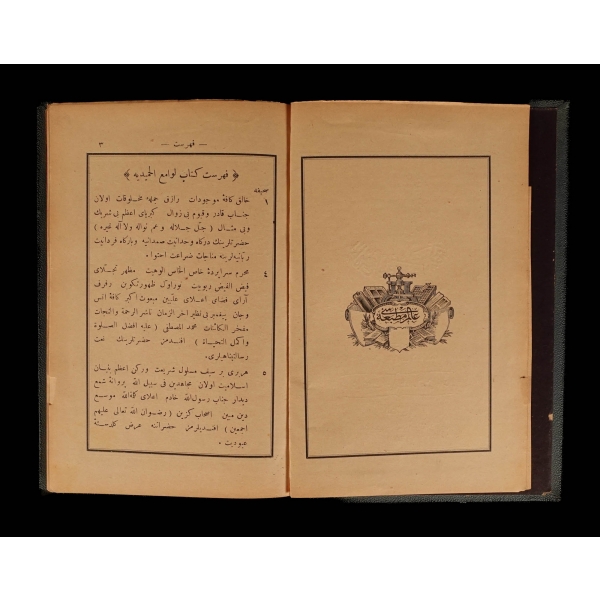 — فهرست — ٣
﴿ فهرست كتاب لوامع الحميديه ﴾
صحيفه
١ خالق كافهٔ موجودات رازق جمله مخلوقات اولان
جناب قادر وقيوم بى زوال كبرياى اعظم بى شريك
وبى مثال ( جل جلاله و عم نواله ولا اله غيره )
حضرتلرينك درگاه وحدانيت صمدانيه وبارگاه فردانيت
ربانيه لرينه مناجات ضراعت احتوا ٠
٤ محرم سراپردهٔ خاص الخاص الوهيت مظهر تجلاى
فيض الفيض ربوبيت نوراوك ظهورتكون رفرف
آراى فضاى اعلاى عليين مبعوث اكبر كافهٔ انس
وجان پيغمبر بى نظير آخر الزمان ناشر الرحمة والنجات
مفخر الكائنات محمد المصطفى ( عليه افضل الصلوة
واكمل التحيات ) افندمز حضرتلرينك نعت
رسالتپناهيلرى ٠
٥ هربرى بر سيف مسلول شريعت وركن اعظم بنيان
اسلاميت اولان مجاهدين فى سبيل الله پروانهٔ شمع
ديدار جناب رسول الله خادم اعلاى كلة الله موسع
دين مبين اصحاب كزين ( رضوان الله تعالى عليهم
اجمعين ) افنديلرمز حضراتنه عرض كلدستهٔ
عبوديت ٠
عالم مطبعه سى